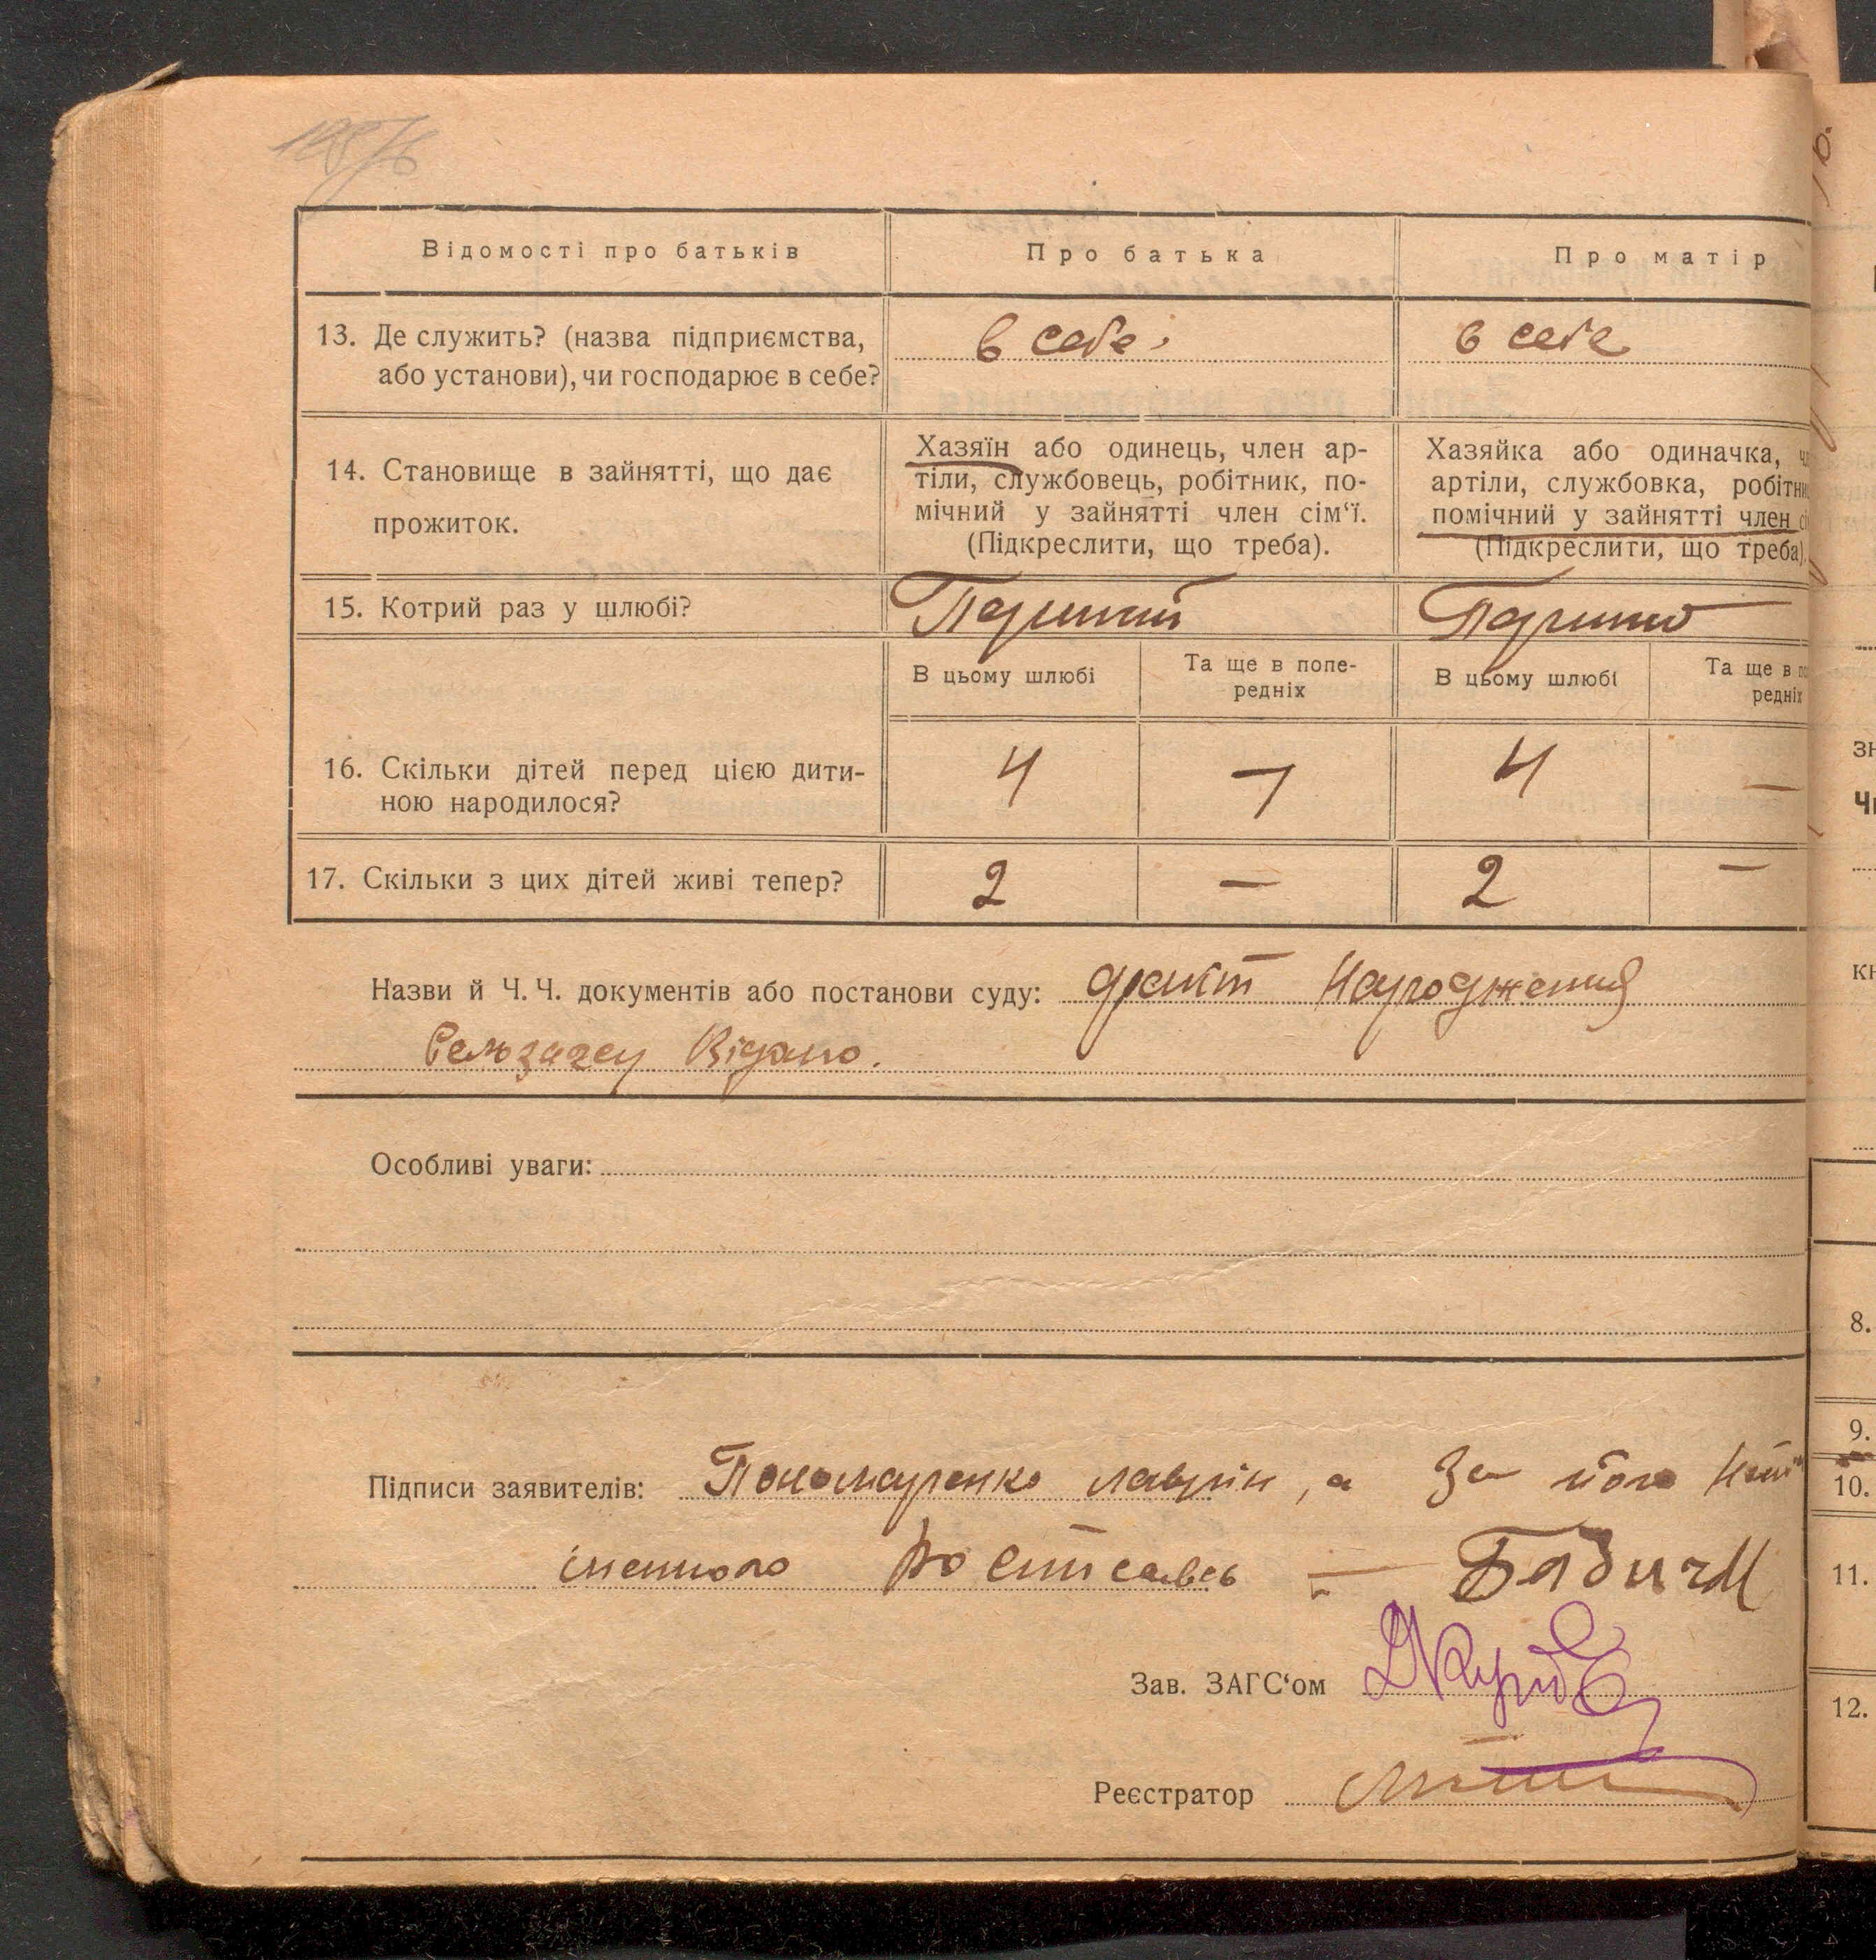 Відомості про батьків
Про батька
Про матір
13. Де служить? (назва підприємства, або установи), чи господарює в себе?
в себе
в себе
14. Становище в зайнятті, що дає прожиток.
Хазяїн або одинець, член ар-
тіли, службовець, робітник, по-
мічний у зайнятті член сім‘ї.
(Підкреслити, що треба).
Хазяйка або одиначка,
артіли, службовка,
помічний у зайнятті член
(Підкреслити, що треба).
15. Котрий раз у шлюбі?
Перший
В цьому шлюбі
Та ще в попе-
редніх
В цьому шлюбі
Та ще в
16. Скільки дітей перед цією дити-
ною народилося?
4
—
4
—
17. Скільки з цих дітей живі тепер?
2
—
2
—
Назви й Ч. Ч. документів або постанови суду: факт народження
Сельзагсу Відомо.
Особливі уваги:
Підписи заявителів: Пономаренко Лаврін, а за його
росписалвсь — Бабич М
Зав. ЗАГС‘ом
Реєстратор
8.
9.
10.
11.
12.